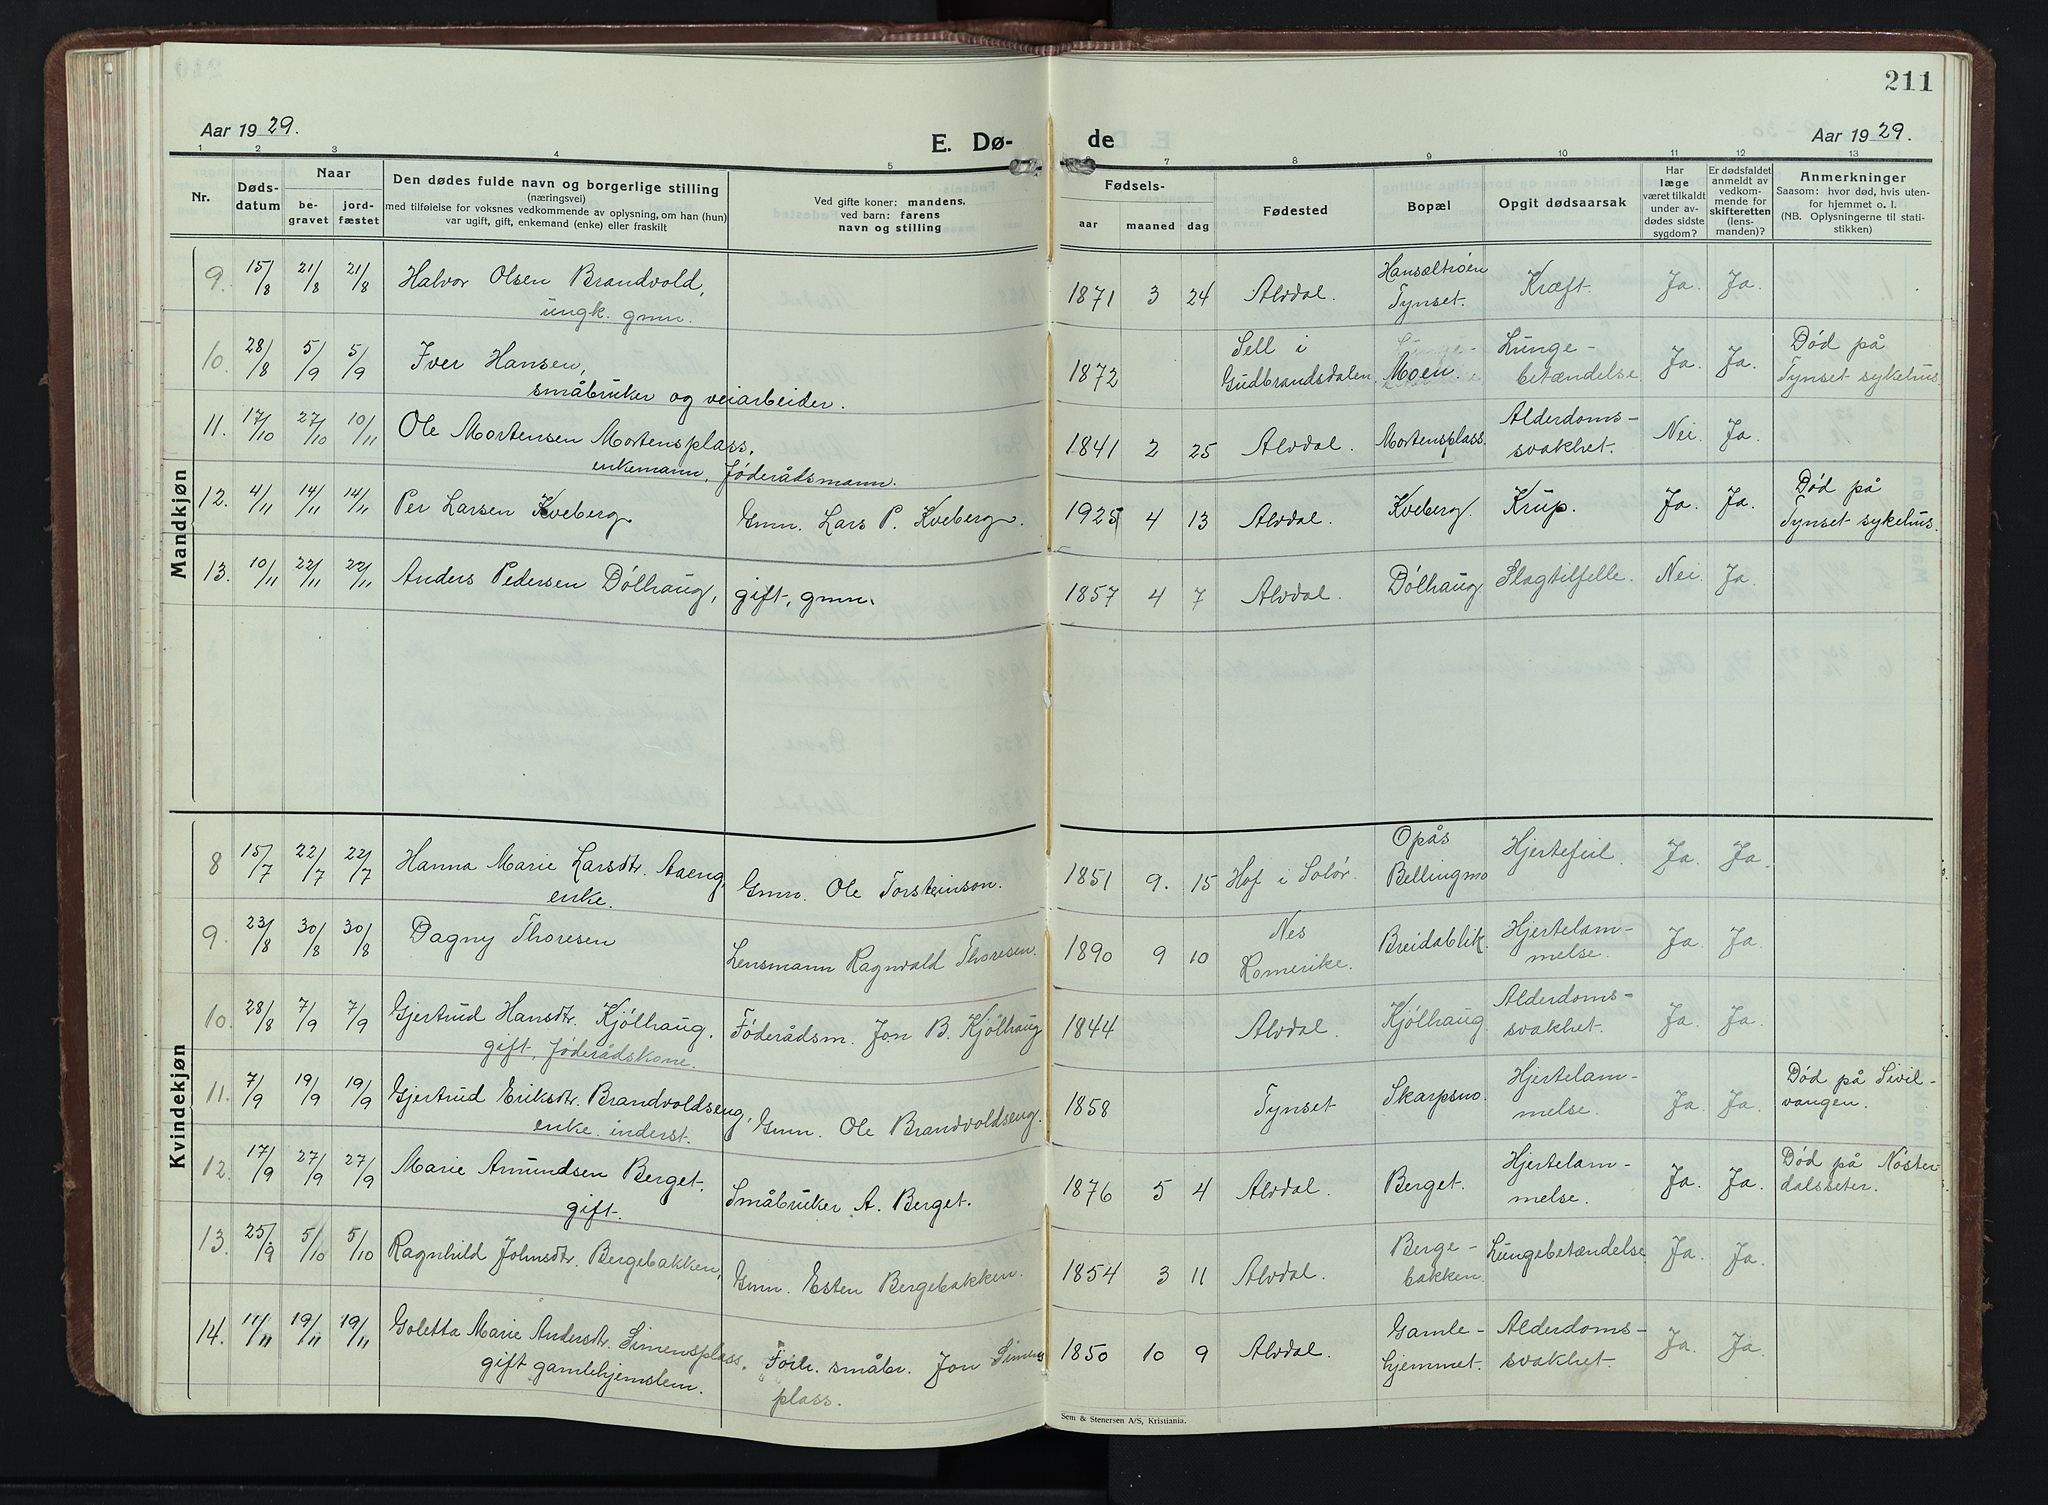 211
Aar 1929.
E. Dø-
de
Aar 1929.
1 2 3 4 5 7 8 9 10 11 12 13
Nr.
Døds-
datum
Naar
be-
gravet
jord-
fæstet
Den dødes fulde navn og borgerlige stilling
(næringsvei)
med tilføielse for voksnes vedkommende av oplysning, om han (hun)
var ugift, gift, enkemand (enke) eller fraskilt
Ved gifte koner: mandens,
ved barn: farens
navn og stilling
Fødsels-
aar maaned dag
Fødested
Bopæl
Opgit dødsaarsak
Har
læge
været tilkaldt
under av-
dødes sidste
sygdom?
Er dødsfaldet
anmeldt av
vedkom-
mende for
skifteretten
(lens-
manden)?
Anmerkninger
Saasom: hvor død, hvis uten-
for hjemmet o. l.
(NB. Oplysningerne til stati-
stikken)
Mandkjøn
9. 15/8 21/8 21/8 Halvor Olsen Brandvold,
ungk. gmn.
1871 3 24 Alvdal. Hansæltrøen
Tynset. Kræft. Ja. Ja.
10. 28/8 5/9 5/9 Iver Hansen,
småbruker og veiarbeider.
1872 Sell i
Gudbrandsdalen. Moen. Lunge-
betændelse. Ja. Ja. Død på
Tynset sykehus.
11. 17/10 27/10 10/11 Ole Mortensen Mortensplass,
enkemann, føderådsmann.
1841 2 25 Alvdal. Mortensplass. Alderdoms-
svakhet. Nei. Ja.
12. 4/11 14/11 14/11 Per Larsen Kveberg Gmn. Lars P. Kveberg.
1925 4 13 Alvdal. Kveberg. Krup. Ja. Ja. Død på
Tynset sykehus.
13. 10/11 22/11 22/11 Anders Pedersen Dølhaug, gift, gmn.
1857 4 7 Alvdal. Dølhaug. Slagtilfelle. Nei. Ja.
Kvindekjøn
8 15/7 22/7 22/7 Hanna Marie Larsdtr. Aaeng,
enke. Gmn. Ole Torsteinson.
1851 9. 15 Hof i Solør. Opås
Bellingmo Hjertefeil. Ja. Ja.
9. 23/8 30/8 30/8 Dagny Thoresen Lensmann Ragnvald Thoresen.
1890 9 10 Nes
Romerike. Breidablik. Hjertelam-
melse. Ja. Ja.
10. 28/8 7/9 7/9 Gjertrud Hansdtr. Kjølhaug,
gift, føderådskone. Føderådsm. Jon B. Kjølhaug
1844 Alvdal. Kjølhaug. Alderdoms-
svakhet. Ja. Ja.
11. 7/9 19/9 19/9 Gjertrud Eriksdtr. Brandvoldseng,
enke. inderst. Gmn. Ole Brandvoldseng.
1858 Tynset Skarpsno. Hjertelam-
melse. Ja. Ja. Død på Sivil-
vangen.
12. 17/9 27/9 27/9 Marie Amundsen Berget.
gift. Småbruker A. Berget.
1876 5 4 Alvdal. Berget. Hjertelam-
melse. Ja. Ja. Død på Nøster-
dalsseter.
13. 25/9 5/10 5/10 Ragnhild Johnsdtr. Bergebakken, Gmn. Esten Bergebakken.
1854 3 11 Alvdal. Berge-
bakken. Lungebetændelse. Ja. Ja.
14. 11/11 19/11 19/11 Goletta Marie Andersdtr. Simensplass.
gift gamlehjemslem. Forh. småbr. Jon Simens
plass.
1850 10 9 Alvdal. Gamle-
hjemmet. Alderdoms-
svakhet. Ja. Ja.
Sem & Stenersen A/S, Kristiania.